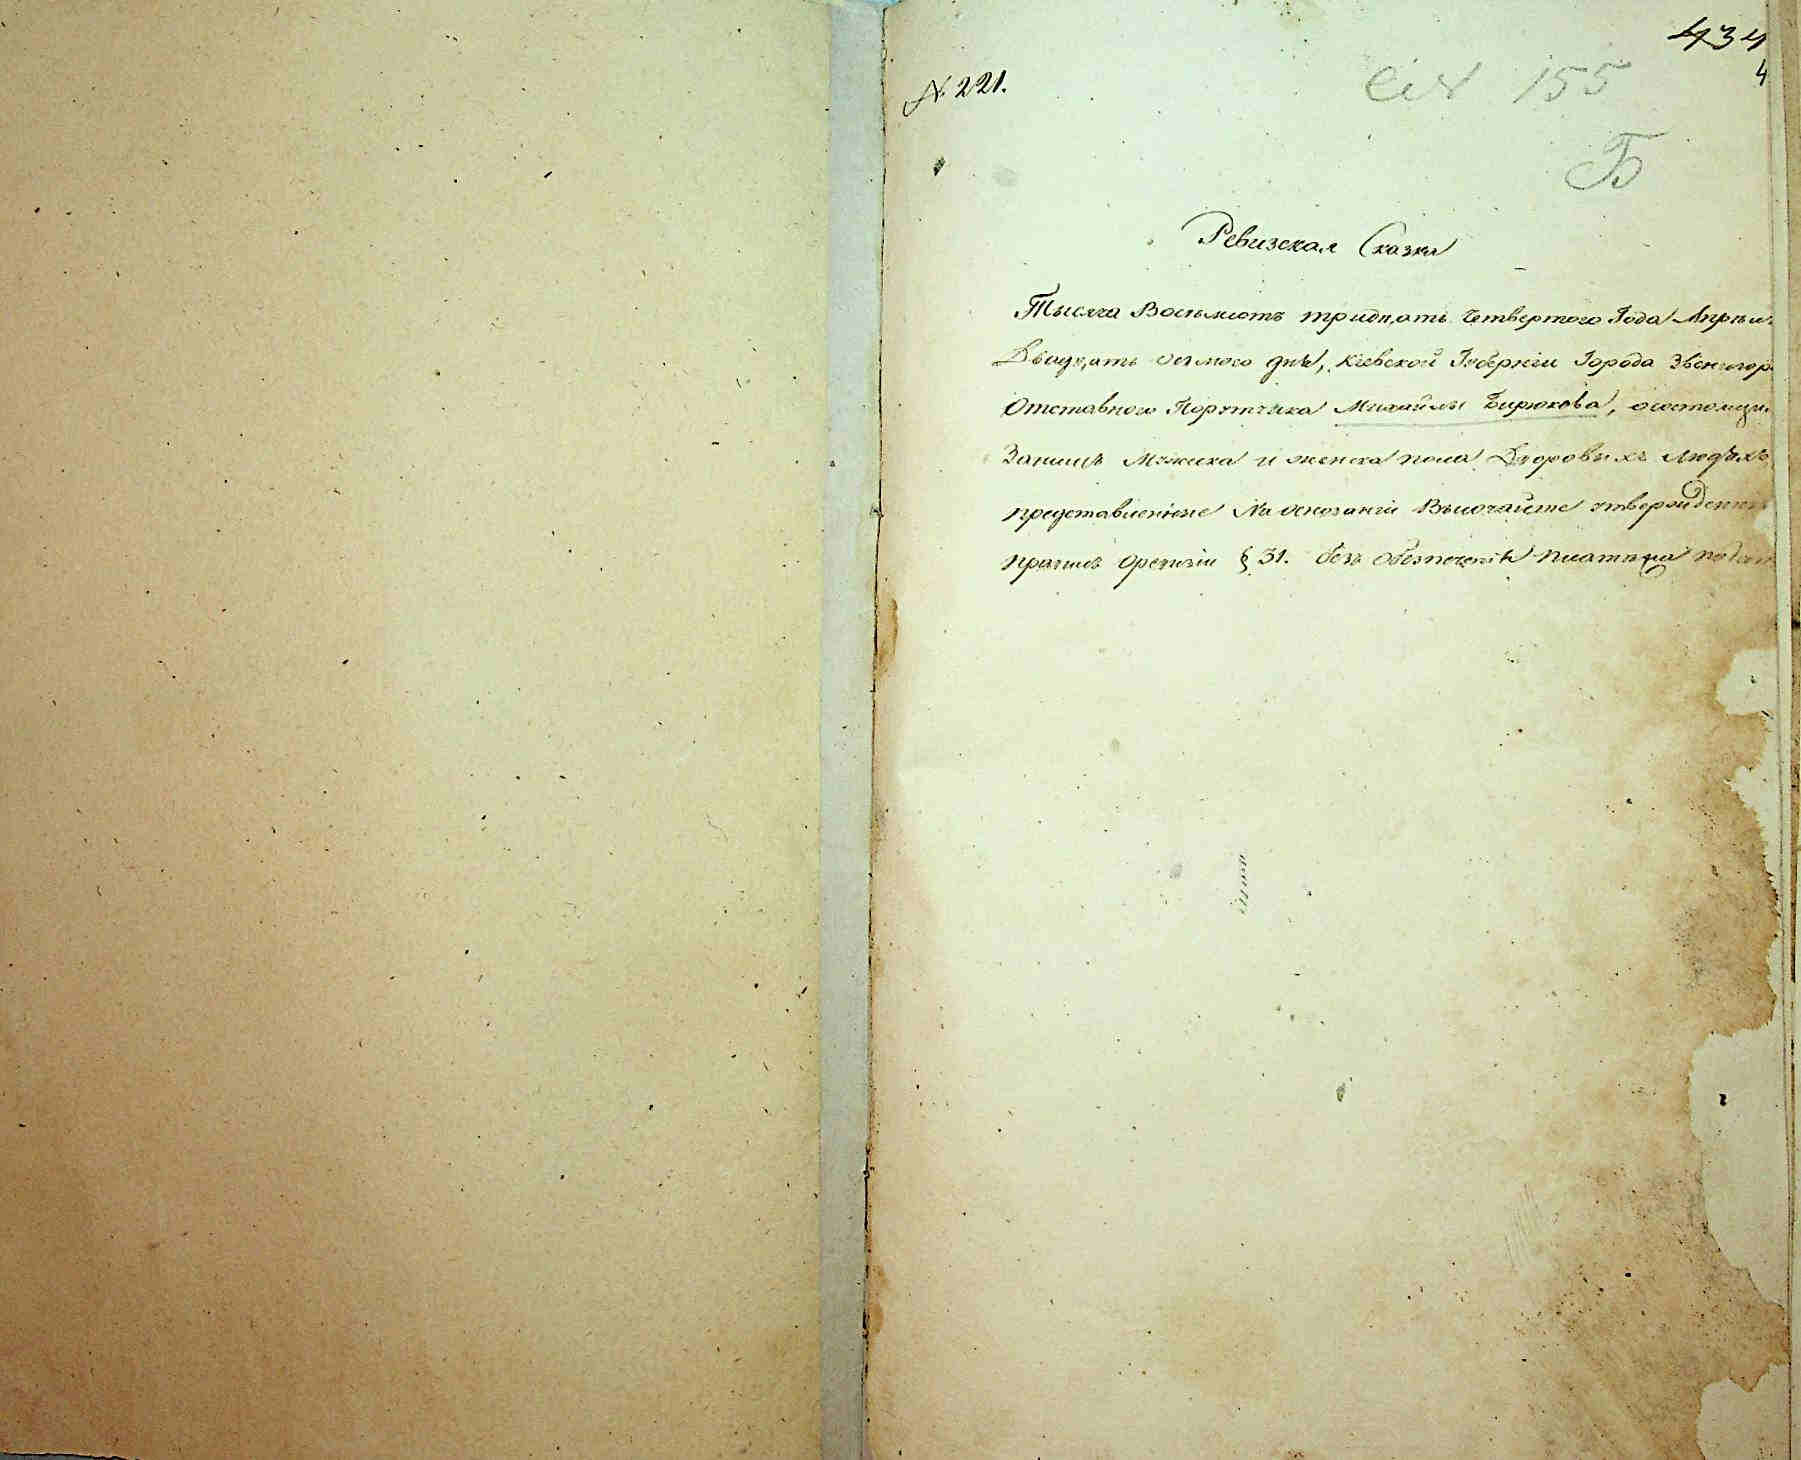 434
4
№ 221.
сіл 155
Б
Ревизская Сказка
Тысяча Восемьсотъ тридцать четвертого Года Апреля
Двадцать осмого дня, Киевской Губерніи Города Звенигор
Отставного Порутчика Михайлы Бирюкова, осостоящи
Занимъ Мужеска и женска пола Дворовыхъ людѣхъ
представленіюе На основаніи Высочайше утвержденны
правилъ оревизіи § 31. безъ обезпеченія платежа подат